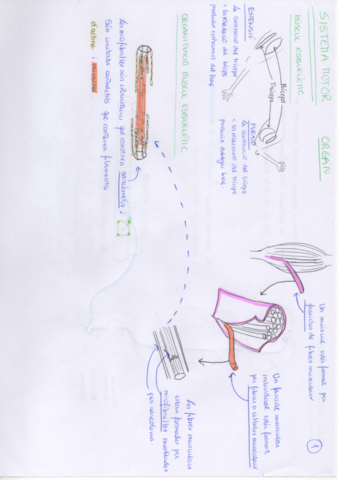 SISTEMA MOTOR ORGAN
MÚSCUL ESQUELÈTIC
EXTENSIÓ
la contracció del tríceps
i la relaxació del bíceps
produeix extensió del braç
Bíceps
Tríceps
FLEXIÓ
la contracció del bíceps
i la relaxació del tríceps
produeix del braç
ORGANITZACIÓ MÚSCUL ESQUELÈTIC
Un múscul està format per
fascicles de fibres musculars
Un fascicle muscular
individual està format
per fibres o cèl·lules musculars
Les fibres musculars
estan formades per
miofibril·les envoltades
per sarcolema.
Les miofibril·les són estructures que contenen sarcòmers.
Són unitats contràctils que contenen filaments
d'actina i miosina
1